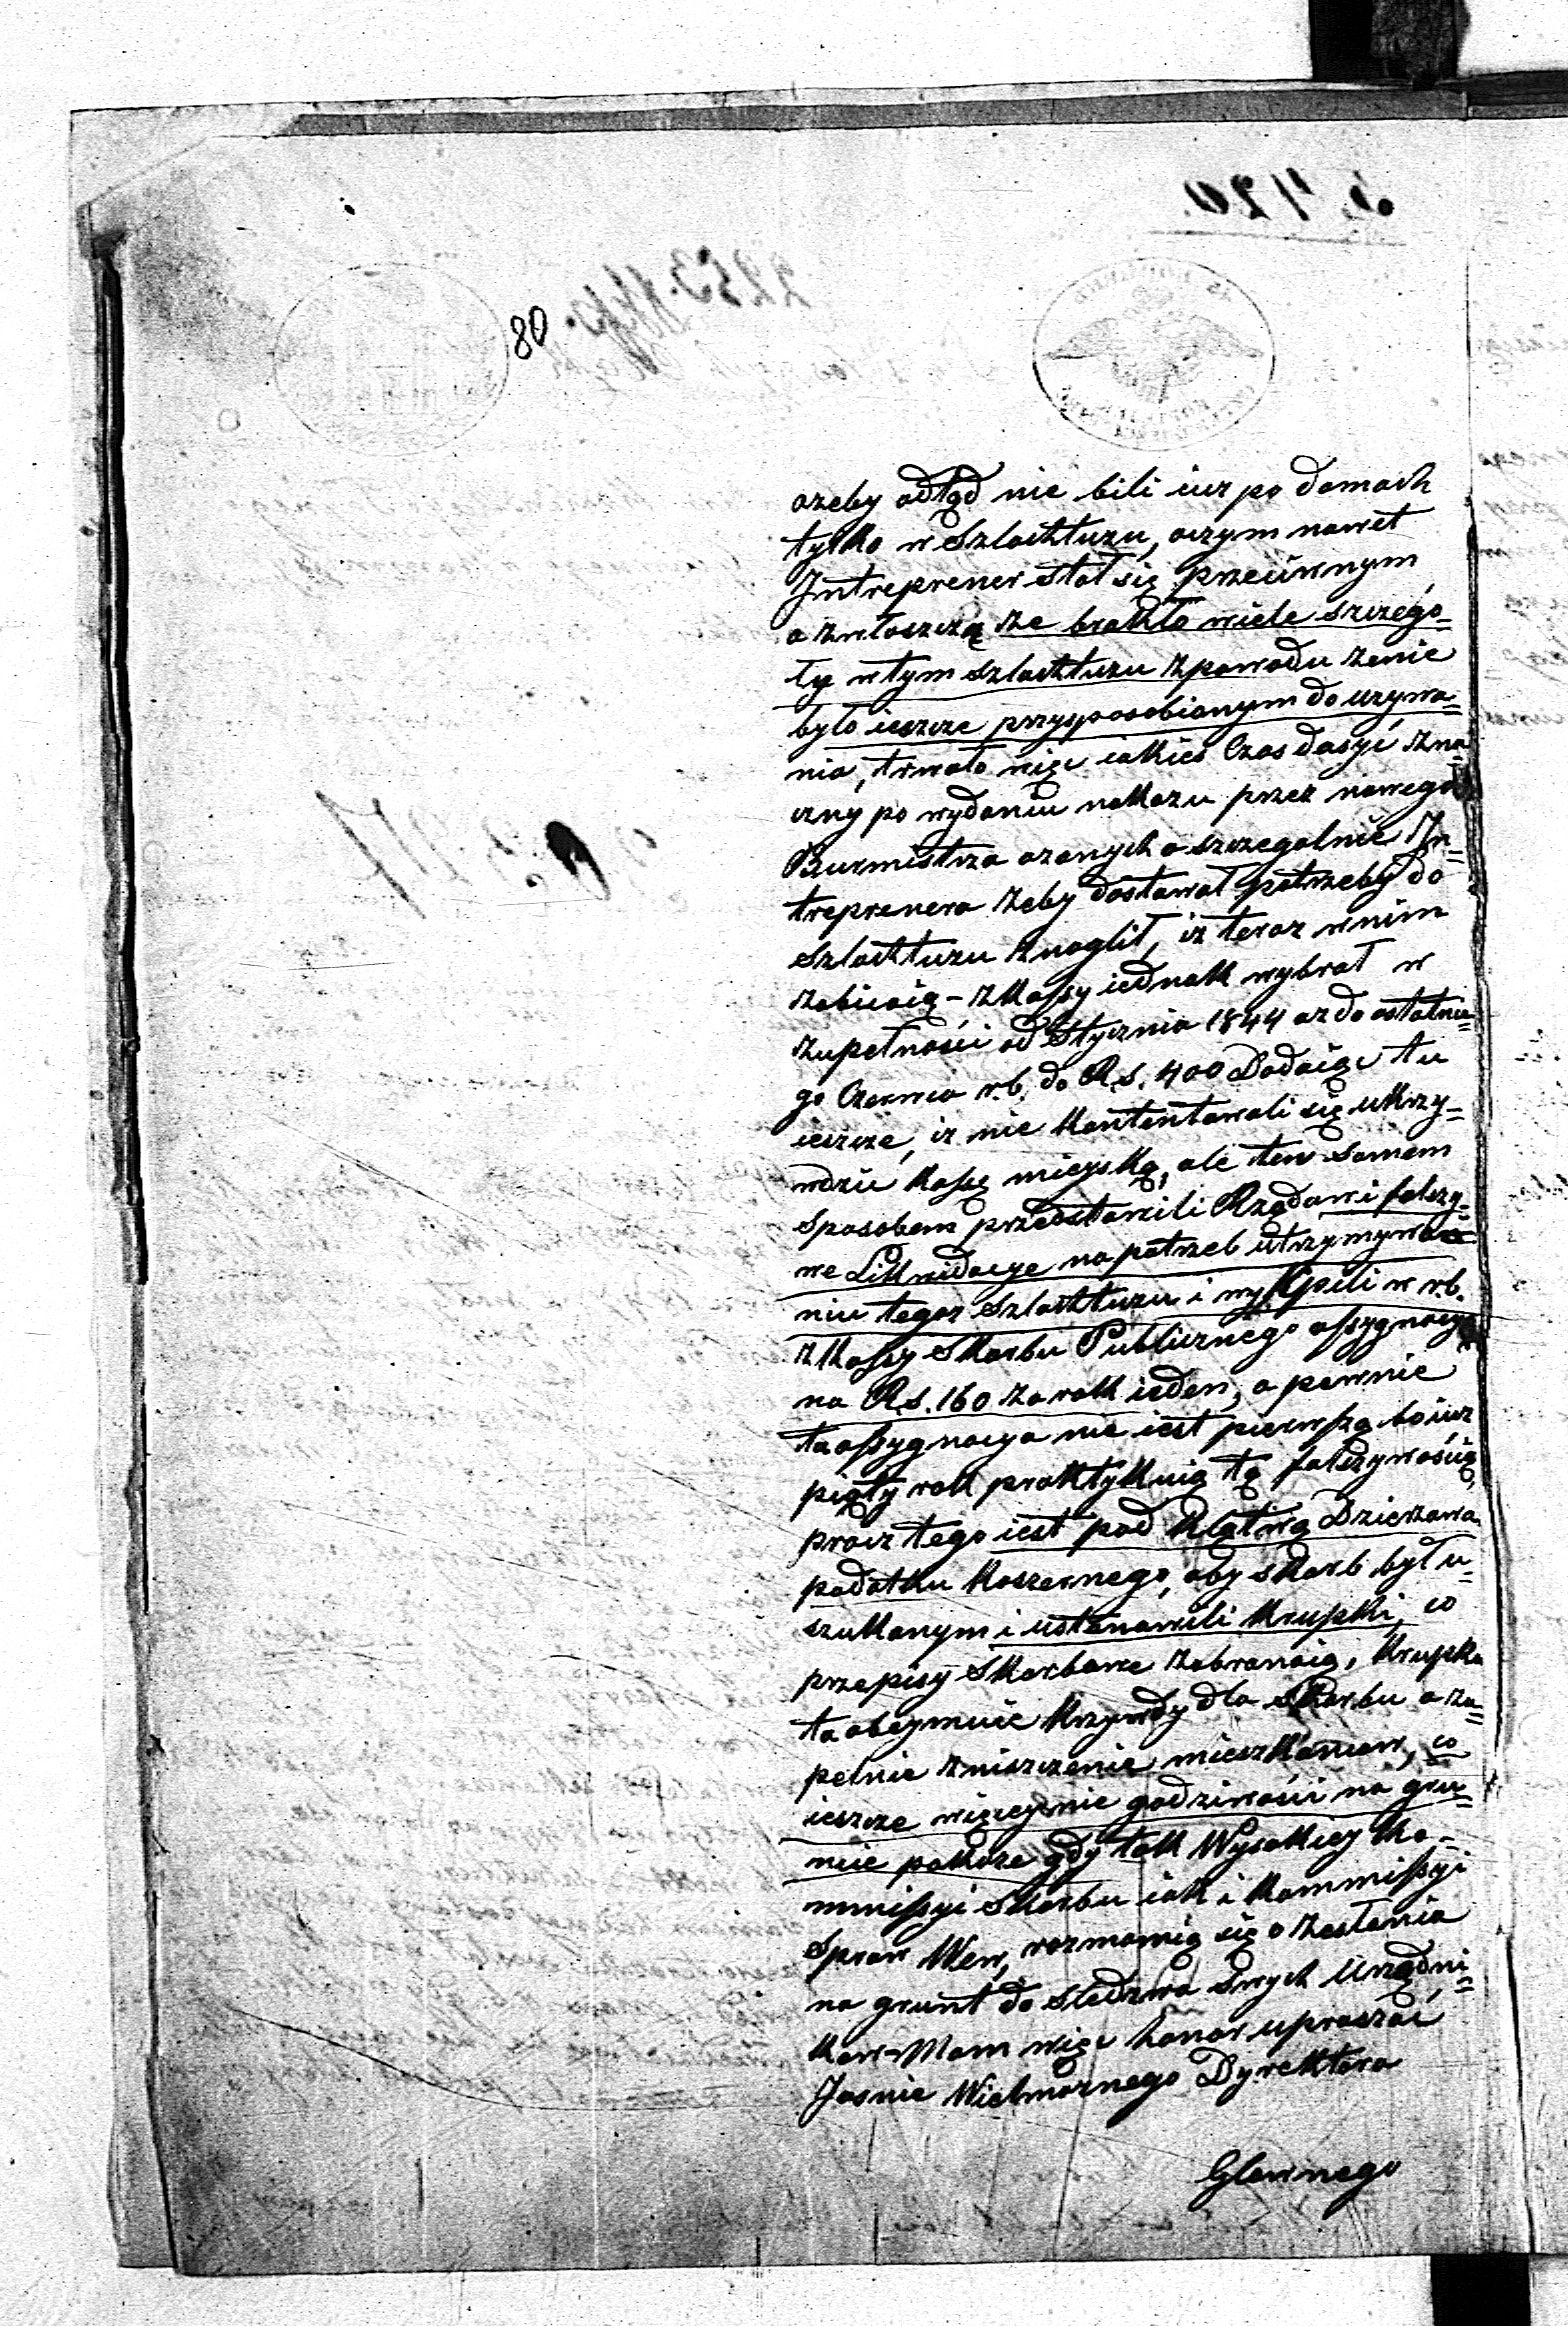 80
azeby odtąd nie bili iuz po domach
tylko w Szlachtuzu, oczym nawet
Intreprener stał się przeciwnym
a zwłaszczą że brakło wiele szczego=
ły w tym szlachtuzu z powodu ze nie
było ieszcze przysposobionym do uzywa=
nia, trwało więc iakieś Czas dosyć zna
czny po wydaniu nakazu przez nowego
Burmistrza azanych a szczegolnie In=
treprenera żeby dostawał potrzeby do
szlachtuzu znaglił, iz teraz w nim
zabiiaią - z Kassy iednak wybrał w
zupełności od Stycznia 1844 az do ostatnie=
go Czerwca r.b. do R.s. 400 Dodaiąc tu
ieszcze, iz nie kontentowali się ukrzy=
wdzic Kassę mieyską, ale tem samem
sposobem przedstawili Rządowi fałszy=
we Likwidacye na potrzeb utrzymywa
niu tegoz Szlachtuzu i wykpili w r.b.
z Kassy Skarbu Publicznego assygnacyę
na R.s. 160 za rok ieden, a pewnie
ta assygnacya nie iest pierwszą bo iuz
piąty rok praktykuią tą fałszywością,
procz tego iest pod Klątwą Dzierzawa
podatku koszernego, aby skarb był u=
szukanym i ustanowili Krupki, co
przepisy Skarbowe zabraniaią, Krupka
ta obeymuie krzywdy dla Skarbu a zu=
pełnie zniszczenie mieszkańcow, co
ieszcze więcey nie godziwości na gru=
ncie pokaze gdy tak Wysokiey Ko=
mmissyi Skarbu iak i Kommissyi
Spraw Wew, rozmowią się o zesłania
na grunt do sledzwa swych Urzędni=
kow - Mam więc honor upraszać
Jasnie Wielmoznego Dyrektora
Glownego